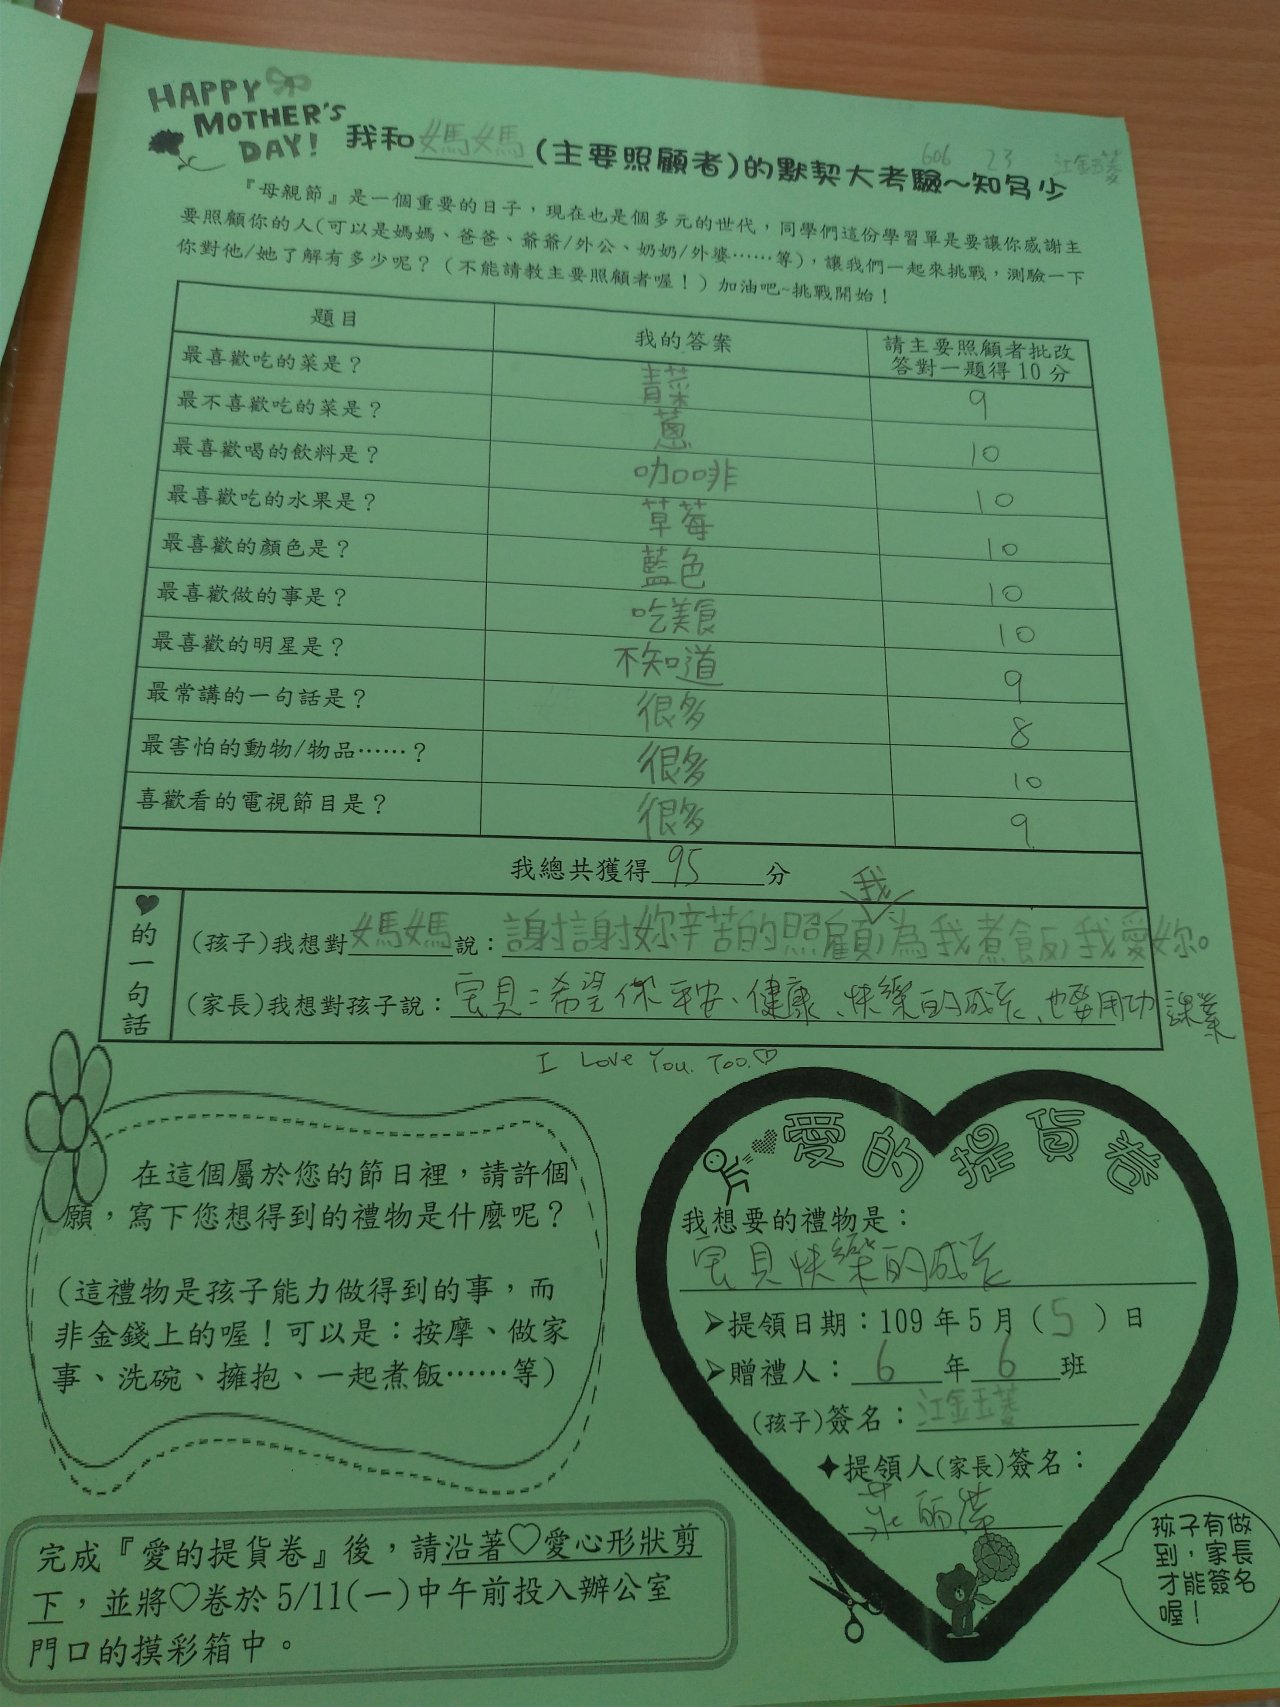 HAPPY
MOTHER'S
DAY!
606 23 江金玉菱
我和媽媽(主要照顧者)的默契大考驗~知多少
『母親節』是一個重要的日子，現在也是個多元的世代，同學們這份學習單是要讓你感謝主
要照顧你的人(可以是媽媽、爸爸、爺爺/外公、奶奶/外婆……等)，讓我們一起來挑戰，測驗一下
你對他/她了解有多少呢？（不能請教主要照顧者喔！）加油吧~挑戰開始！
題目 我的答案 請主要照顧者批改
答對一題得10分
最喜歡吃的菜是？ 青菜 9
最不喜歡吃的菜是？ 蔥 10
最喜歡喝的飲料是？ 咖啡 10
最喜歡吃的水果是？ 草莓 10
最喜歡的顏色是？ 藍色 10
最喜歡做的事是？ 吃美食 10
最喜歡的明星是？ 不知道 9
最常講的一句話是？ 很多 8
最害怕的動物/物品……？ 很多 10
喜歡看的電視節目是？ 很多 9
我總共獲得95分
♥的一句話
(孩子)我想對媽媽說：謝謝妳辛苦的照顧我，為我煮飯，我愛妳。
(家長)我想對孩子說：宝貝：希望你平安、健康、快樂的成長、也要用功課業
I Love You. Too.♡
在這個屬於您的節日裡，請許個
願，寫下您想得到的禮物是什麼呢？
(這禮物是孩子能力做得到的事，而
非金錢上的喔！可以是：按摩、做家
事、洗碗、擁抱、一起煮飯……等)
愛的提貨卷
我想要的禮物是：
宝貝快樂的成長
➤提領日期：109年5月（5）日
➤贈禮人：6年6班
(孩子)簽名：江金玉菱
✦提領人(家長)簽名：
孩子有做
到，家長
才能簽名
喔！
完成『愛的提貨卷』後，請沿著♡愛心形狀剪
下，並將♡卷於5/11(一)中午前投入辦公室
門口的摸彩箱中。